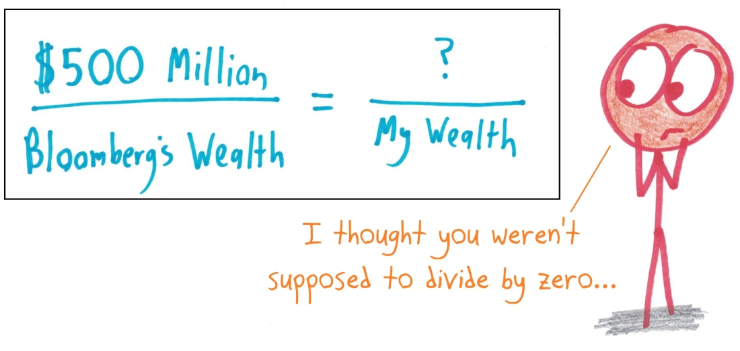 $500 Million
Bloomberg's Wealth
=
?
My Wealth
I thought you weren't
supposed to divide by zero...